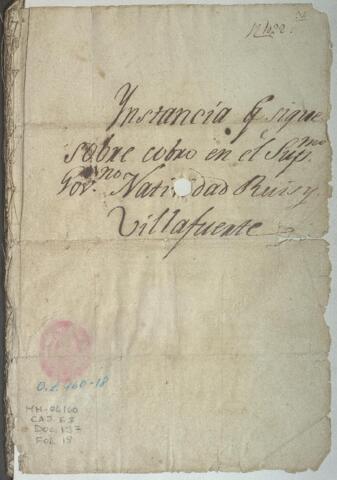 Instancia q̃ sigue
sobre cobro en el Sup.mo
Gov.no Natividad Ruis y
Villafuente
O.L. 460-18
MH-04160
CAJ. 63
DOC. 197
FOL. 18